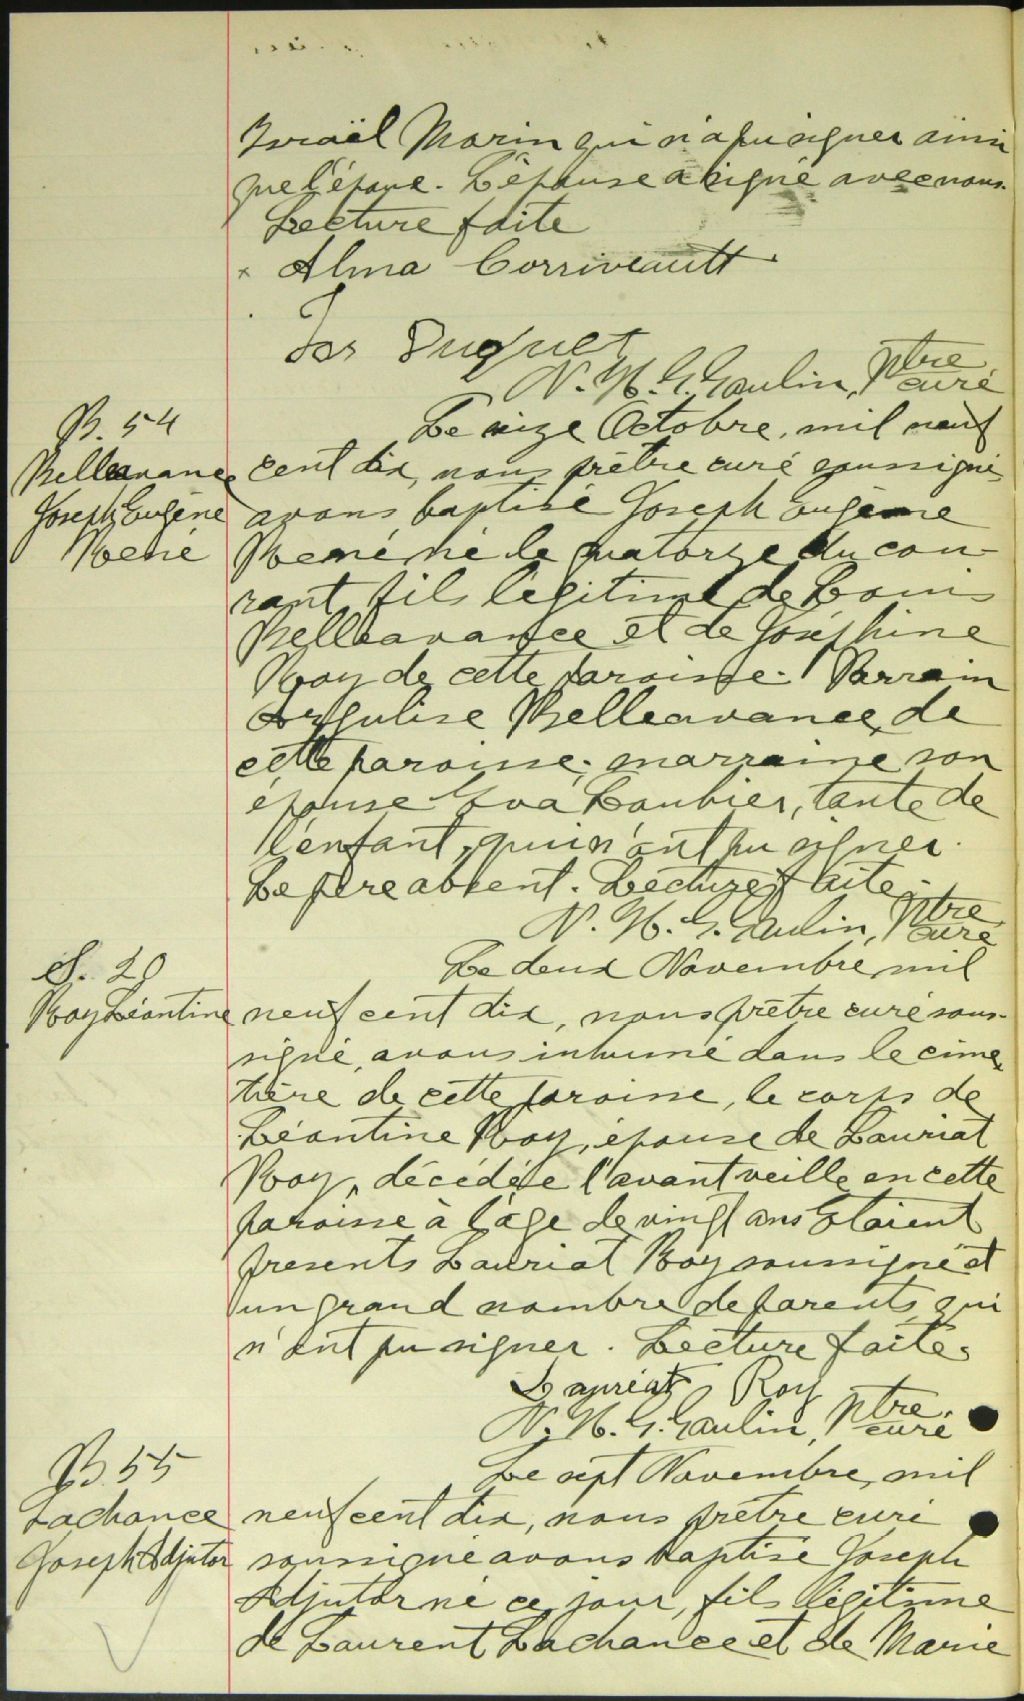 Israël Morin qui n'a pu signer ainsi
que l'époux. L'épouse a signé avec nous.
Lecture faite
x Alma Corriveault
Jos Duquet
N. H. G. Gaulin, Ptre
curé
B. 54
Belleavance
Joseph Eugène
René
Le seize Octobre, mil neuf
cent dix, nous prêtre curé soussigné
avons baptisé Joseph Eugène
René né le quatorze du cou-
rant fils légitime de Louis
Belleavance et de Joséphine
Roy de cette paroisse. Parrain
Belleavance, de
cette paroisse; marraine son
épouse Eva Loubier, tante de
l'enfant, qui n'ont pu signer.
Le père absent. Lecture faite.
N. H. G. Gaulin, Ptre
curé
S. 20
Roy Léontine
Le deux Novembre, mil
neuf cent dix, nous prêtre curé sous-
signé, avons inhumé dans le cime-
tière de cette paroisse, le corps de
Léontine Roy, épouse de Lauriat
Roy, décédée l'avant veille en cette
paroisse à l'âge de vingt ans Etaient
presents Lauriat Roy soussigné et
un grand nombre de parents qui
n'ont pu signer. Lecture faite.
Lauriat Roy
N. H. G. Gaulin, Ptre.
curé
B. 55
Lachance
Joseph Adjutor
Le sept Novembre, mil
neuf cent dix, nous prêtre curé
soussigné avons baptisé Joseph
Adjutor né ce jour, fils légitime
de Laurent Lachance et de Marie